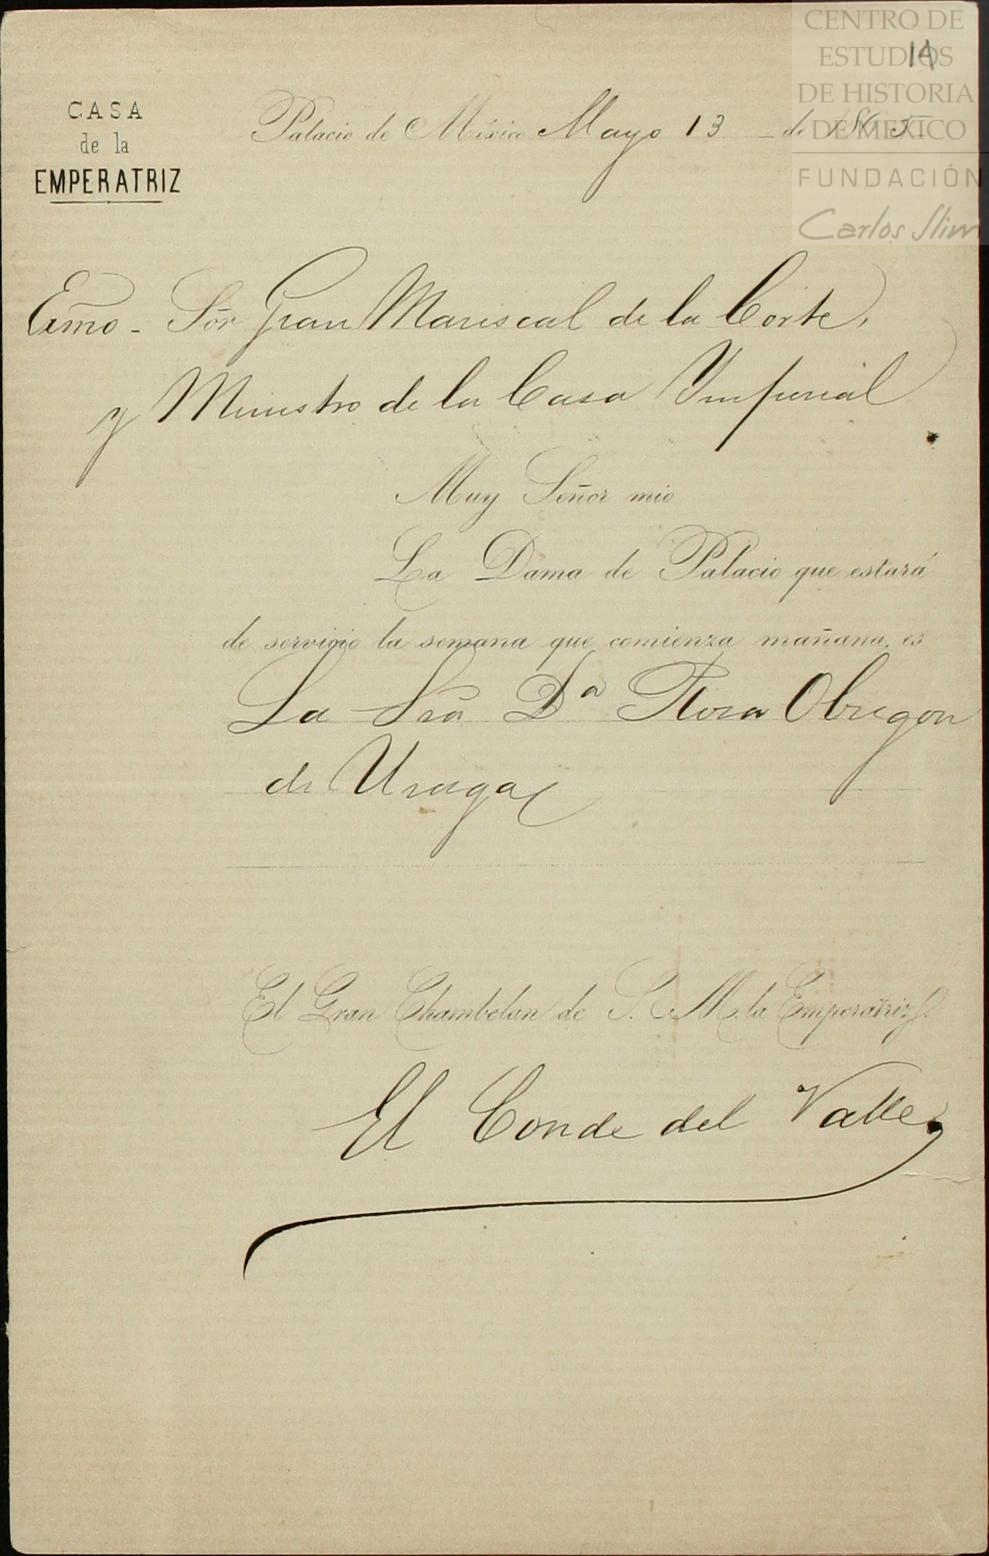 CENTRO DE
ESTUDIOS
DE HISTORIA
DE MÉXICO
FUNDACIÓN
Carlos Slim
14
CASA
de la
EMPERATRIZ
Palacio de México Mayo 13 de 1865
Exmo. Sõr Gran Mariscal de la Corte,
y Ministro de la Casa Imperial
Muy Señor mio
La Dama de Palacio que estará
de servicio la semana que comienza mañana, es
La Sra Dª Rosa Obregon
de Uraga
El Gran Chambelan de S. M. la Emperatriz
El Conde del Valle